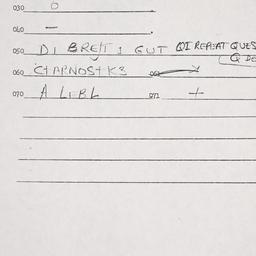 030 0
040 —
050 DI BREIT I GUT QI REPEAT QUES
(Q DE
060 CHARNOSTK3 061
070 A LEBL 071 +